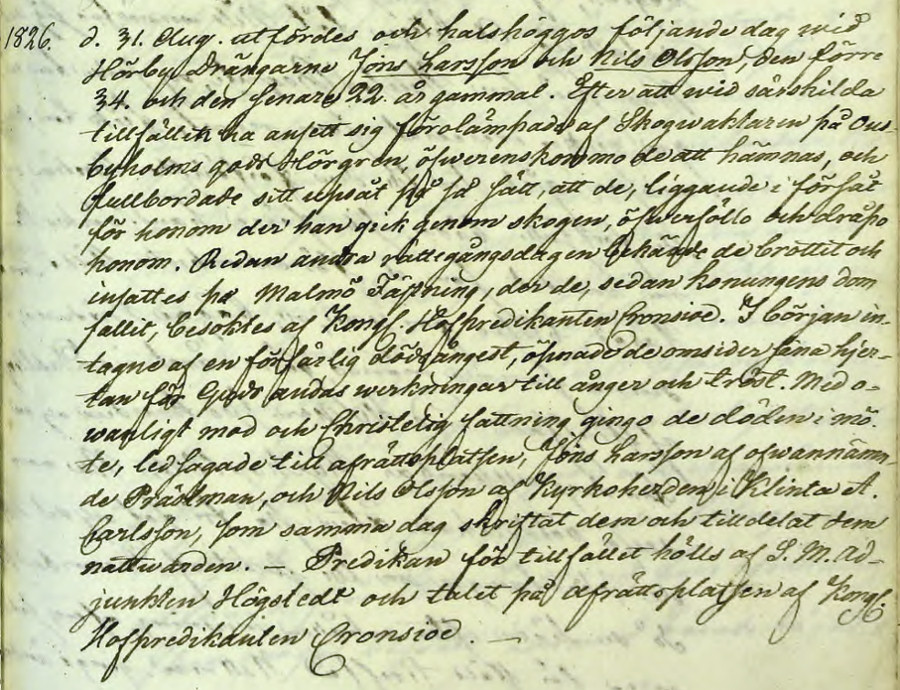 1826. d. 31. Aug. utfördes och halshöggos följande dag wid
Hörby Drängarne Jöns Larsson och Nils Olsson, den förre
34. och den senare 22. år gammal. Efter att wid särskilda
tillfällen ha ansett sig förolämpade af Skogwaktaren på Ous-
byholms gods Hörgren, öfwerenskommo de att hämnas, och
fullbordade sitt upsåt på så sätt, att de, liggande i försåt
för honom der han gick genom skogen, öfwerföllo och dråpo
honom. Redan andra rättegångsdagen bekände de brottet och
insattes på Malmö Fästning, der de, sedan Konungens dom
fallit, besöktes af Kongl. Hofpredikanten Cronsioe. I början in-
tagne af en förfärlig dödsångest, öpnade de omsider sina hjer-
tan för Guds andas werkningar till ånger och tröst. Med o-
wanligt mod och Christelig fattning gingo de döden i mö-
te, ledsagade till afrättsplatsen, Jöns Larsson af ofwannämn-
de Prästman, och Nils Olsson af Kyrkoherden i Klinta A.
Carlsson, som samma dag skriftat dem och tilldelat dem
nattwarden. — Predikan för tillfället hölls af S. M. Ad-
junkten Högstedt och talet på afrättsplatsen af Kongl.
Hofpredikanten Cronsioe. —